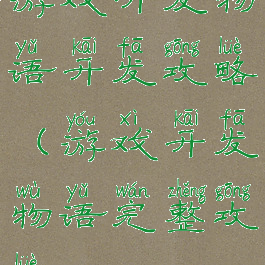 游戏开发物
yǔ kāi fā gōng lüè
语开发攻略
yóu xì kāi fā
（游戏开发
wù yǔ wán zhěng gōng
物语完整攻
lüè